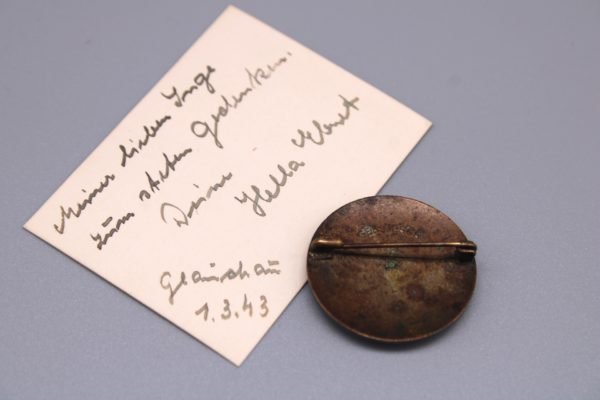 Meiner lieben Inge
zum steten Gedenken.
Deine
Hella Ebert
Glauchau
1.3.43